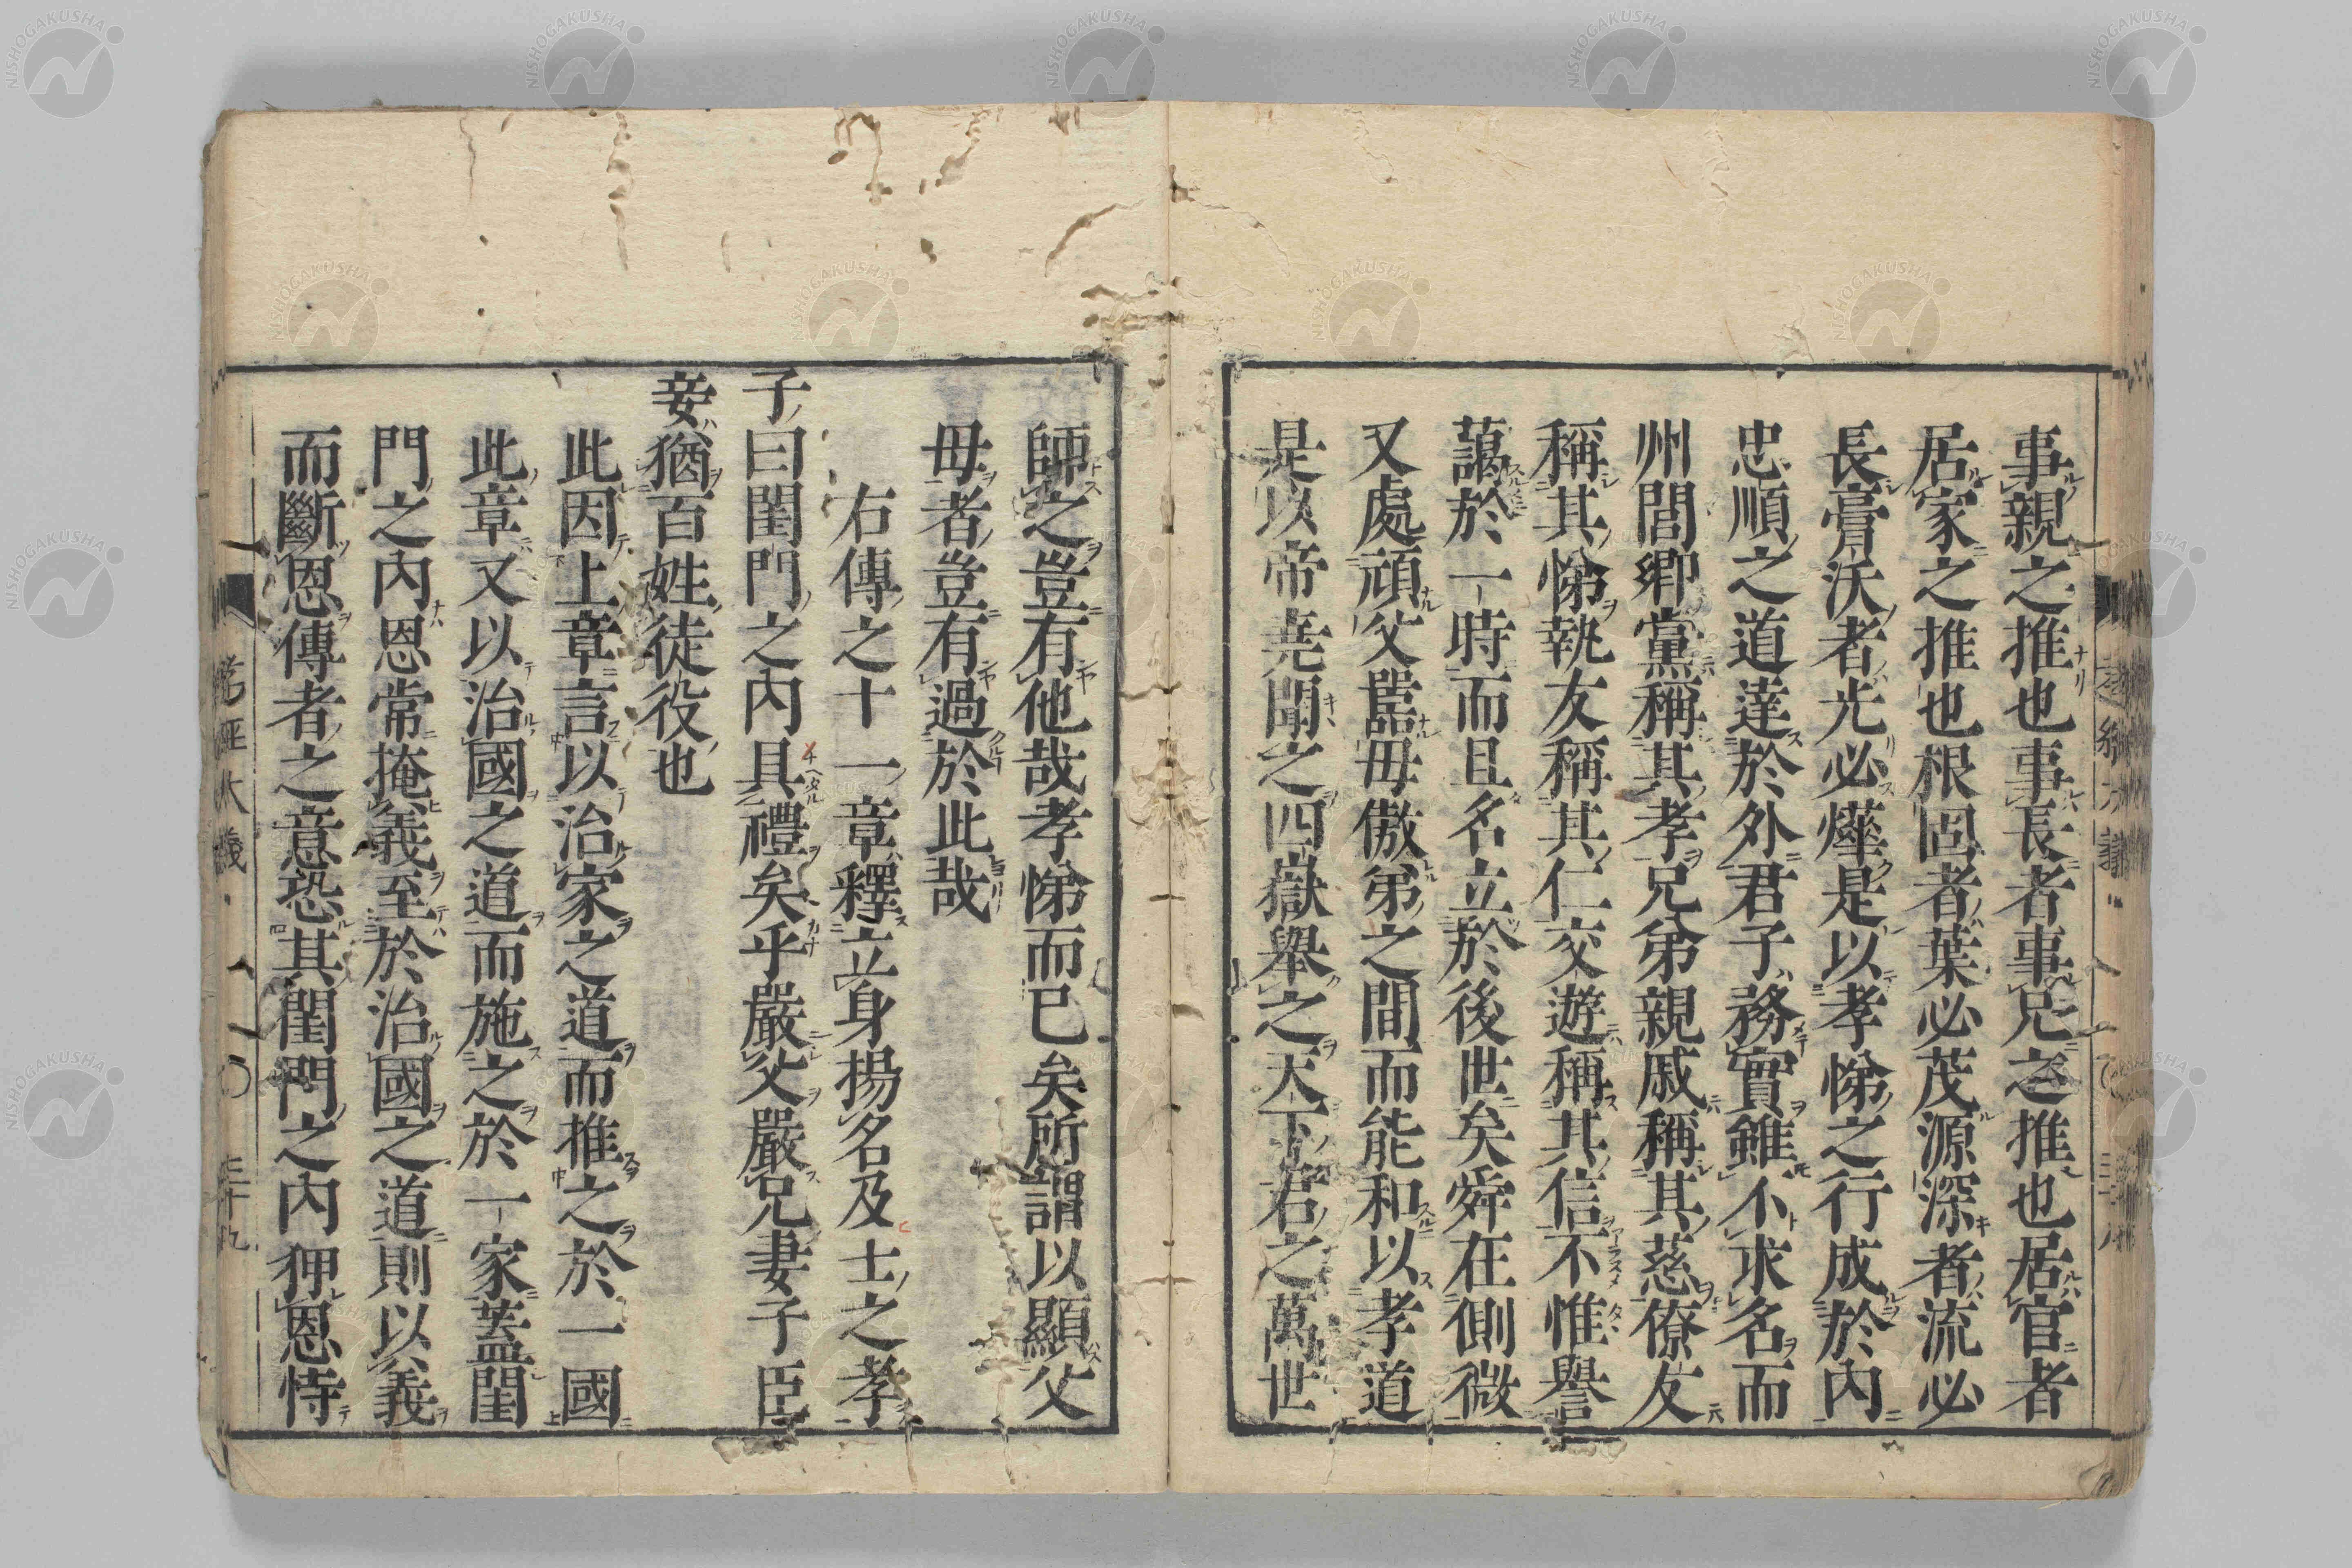 事親之推也事長者事兄之推也居官者
居家之推也根固者葉必茂源深者流必
長膏沃者光必燁是以孝悌之行成於內
忠順之道達於外君子務實雖不求名而
州閭鄉黨稱其孝兄弟親戚稱其慈僚友
稱其悌執友稱其仁交遊稱其信不惟譽
藹於一時而且名立於後世矣舜在側微
又處頑父嚚母傲弟之間而能和以孝道
是以帝堯聞之四嶽舉之天下君之萬世
師之豈有他哉孝悌而已矣所謂以顯父
母者豈有過於此哉
右傳之十一章釋立身揚名及士之孝
子曰閨門之內具禮矣乎嚴父嚴兄妻子臣
妾猶百姓徒役也
此因上章言以治家之道而推之於一國
此章又以治國之道而施之於一家蓋閨
門之內恩常掩義至於治國之道則以義
而斷恩傳者之意恐其閨門之內狎恩恃
孝經大義
三十九
NISHOGAKUSHA